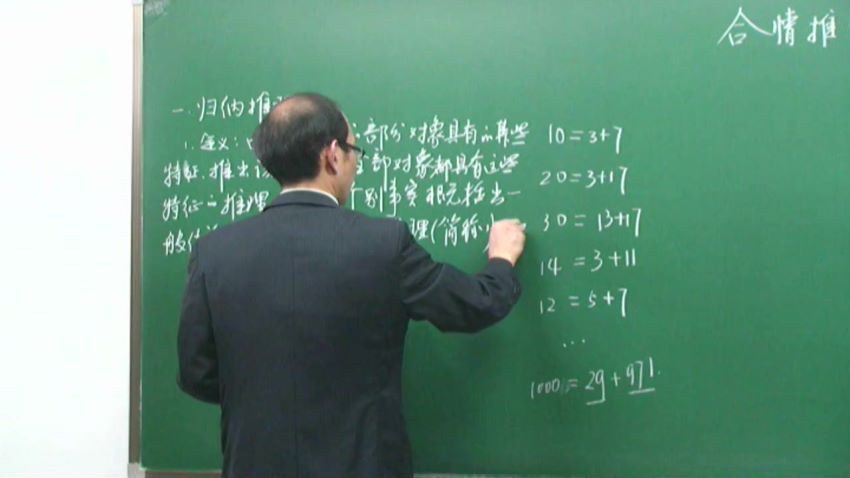 合情推
一.归纳推
1.定义:
部分对象具有的某些
特征,推出该
全部对象都具有这些
特征的推理
个别事实概括出一
般结
理(简称归
10=3+7
20=3+17
30=13+17
14=3+11
12=5+7
...
1000=29+971.